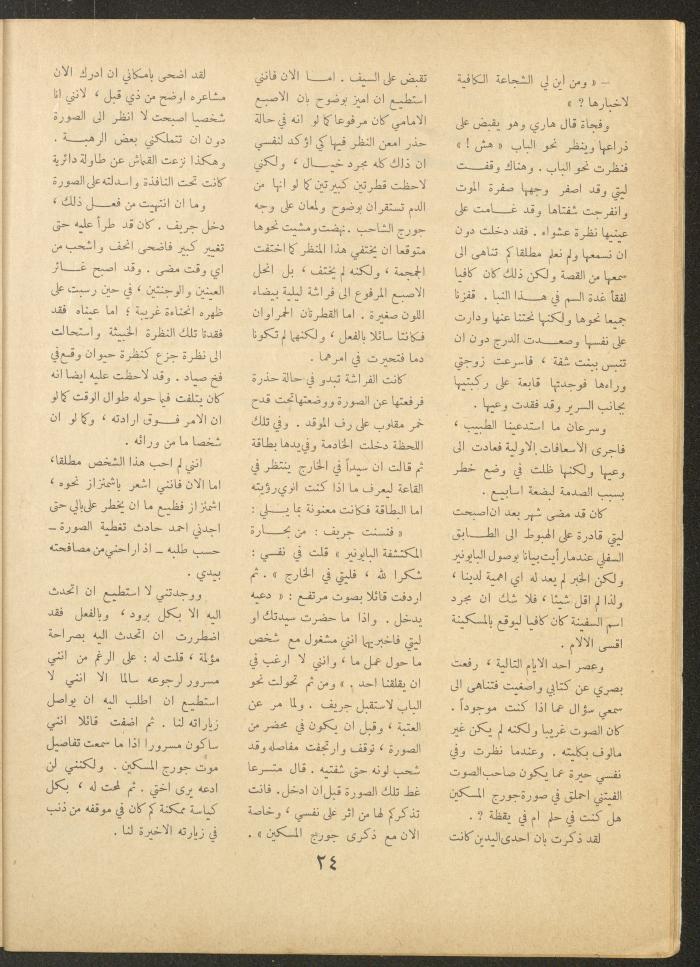 – « ومن اين لي الشجاعة الكافية
لاخبارها ? »
وفجاة قال هاري وهو يقبض على
ذراعها وينظر نحو الباب « هش ! »
فنظرت نحو الباب . وهناك وقفت
ليتي وقد اصفر وجهها صفرة الموت
وانفرجت شفتاها وقد غامت على
عينيها نظرة عشواء . فقد دخلت دون
ان نسمعها ولم نعلم مطلقا كم تناهى الى
سمعها من القصة ولكن ذلك كان كافيا
لفقأ غدة السم في هــذا النبا . قفزنا
جميعا نحوها ولكنها نحتنا عنها ودارت
على نفسها وصعــدت الدرج دون ان
تنبس ببنت شفة ، فاسرعت زوجتي
وراءها فوجدتها قابعة على ركبتيها
بجانب السرير وقد فقدت وعيها .
وسرعان ما استدعينا الطبيب ،
فاجرى الاسعافات الاولية فعادت الى
وعيها ولكنها ظلت في وضع خطر
بسبب الصدمة لبضعة اسابيع .
كان قد مضى شهر بعد ان اصبحت
ليتي قادرة على الهبوط الى الطــابق
السفلي عندما رأيت بيانا بوصول البايونير
ولكن الخبر لم يعد له اي اهمية لدينا ،
ولذا لم اقل شيئا ، فلا شك ان مجرد
اسم السفينة كان كافيا ليوقع بالمسكينة
اقسى الالام .
وعصر احد الايام التالية ، رفعت
بصري عن كتابي واصغيت فتناهى الى
سمعي سؤال عما اذا كنت موجوداً .
كان الصوت غريبا ولكنه لم يكن غير
مالوف بكليته . وعندما نظرت وفي
نفسي حيرة عما يكون صاحب الصوت
الفيتني احملق في صورة جورج المسكين
هل كنت في حلم ام في يقظة ? .
لقد ذكرت بان احدى اليدين كانت
تقبض على السيف . امــا الان فانني
استطيع ان اميز بوضوح بان الاصبع
الامامي كان مرفوعا كما لو انه في حالة
حذر امعن النظر فيها كي اؤكد لنفسي
ان ذلك كله مجرد خيــال ، ولكني
لاحظت قطرتين كبيرتين كما لو انها من
الدم تستقران بوضوح ولمعان على وجه
جورج الشاحب . نهضت ومشيت نحوها
متوقعا ان يختفي هذا المنظر كما اختفت
الجمجمة ، ولكنه لم يختف ، بل انحل
الاصبع المرفوع الى فراشة ليلية بيضاء
اللون صغيرة . اما القطرتان الحمراوان
فكانتا سائلا بالفعل ، ولكنهما لم تكونا
دما فتحيرت في امرهما .
كانت الفراشة تبدو في حالة حذرة
فرفعتها عن الصورة ووضعتها تحت قدح
خمر مقلوب على رف الموقد . وفي تلك
اللحظة دخلت الخادمة وفي يدها بطاقة
ثم قالت ان سيداً في الخارج ينتظر في
القاعة ليعرف ما اذا كنت انوي رؤيته
اما البطاقة فكانت معنونة بما يــلي :
« فنسنت جريف : من بحــارة
المكتشفة البايونير » قلت في نفسي :
شكرا لله ، فليتي في الخارج » . ثم
اردفت قائلا بصوت مرتفع : « دعيه
يدخل . واذا ما حضرت سيدتك او
ليتي فاخبريها انني مشغول مع شخص
ما حول عمل ما ، وانني لا ارغب في
ان يقلقنا احد . » ومن ثم تحولت نحو
الباب لاستقبل جريف . ولما مر عن
العتبة ، وقبل ان يكون في محضر من
الصورة ، توقف وارتجفت مفاصله وقد
شحب لونه حتى شفتيه . قال متسرعا
غط تلك الصورة قبل ان ادخل . فانت
تذكر كم لها من اثر على نفسي ، وخاصة
الان مع ذكرى جورج المسكين » .
لقد اضحى بامكاني ان ادرك الان
مشاعره اوضح من ذي قبل ، لانني انا
شخصيا اصبحت لا انظر الى الصورة
دون ان تتملكني بعض الرهبــة .
وهكذا نزعت القماش عن طاولة دائرية
كانت تحت النافذة واسدلته على الصورة
وما ان انتهيت من فعــل ذلك ،
دخل جريف . كان قد طرأ عليه حتى
تغيير كبير فاضحى انحف واشحب من
اي وقت مضى . وقد اصبح غــائر
العينين والوجنتين ، في حين رسبت على
ظهره انحناءة غريبة ؛ اما عيناه فقد
فقدتا تلك النظرة الخبيثة واستحالت
الى نظرة جزع كنظرة حيوان وقع في
فخ صياد . وقد لاحظت عليه ايضا انه
كان يتلفت فيما حوله طوال الوقت كما لو
ان الامر فــوق ارادته ، وكما لو ان
شخصا ما من ورائه .
انني لم احب هذا الشخص مطلقا،
اما الان فانني اشعر باشمئزاز نحوه ،
اشمئزاز فظيع ما ان يخطر على بالي حتى
اجدني احمد حادث تغطية الصورة –
حسب طلبه – اذ اراحني من مصافحته
بيدي .
ووجدتني لا استطيع ان اتحدث
اليه الا بكل برود ، وبالفعل فقد
اضطررت ان اتحدث اليه بصراحة
مؤلمة ، قلت له : على الرغم من انني
مسرور لرجوعه سالما الا انني لا
استطيع ان اطلب اليه ان يواصل
زياراته لنا . ثم اضفت قائلا انني
ساكون مسرورا اذا ما سمعت تفاصيل
موت جورج المسكين . ولكنني لن
ادعه يرى اختي . ثم لمحت له ، بكل
كياسة ممكنة كم كان في موقفه من ذنب
في زيارته الاخيرة لنا .
٢٤